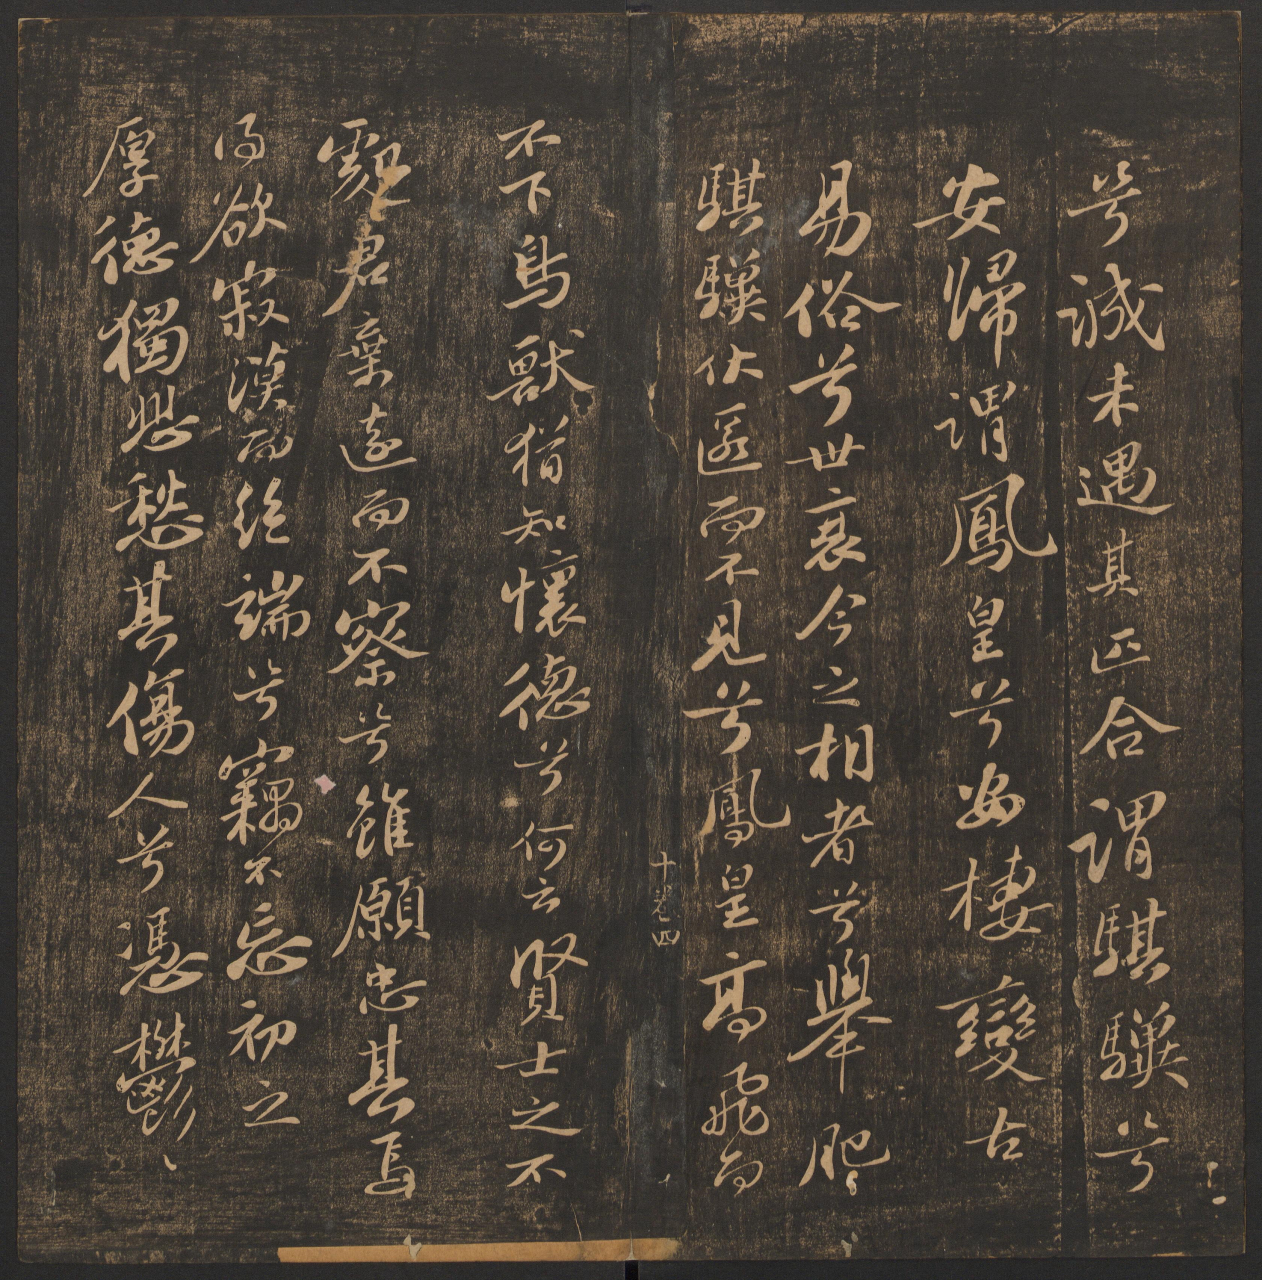 兮誠未遇其匹合謂騏驥兮
安歸謂鳳皇兮安棲變古
易俗兮世衰今之相者兮舉肥
騏驥伏匿而不見兮鳳皇高飛而
不下鳥獸猶知懷德兮何云賢士之不
處君棄遠而不察兮雖願忠其焉
得欲寂漠而絕端兮竊不忘初之
厚德獨悲愁其傷人兮馮欝〻
十卷四